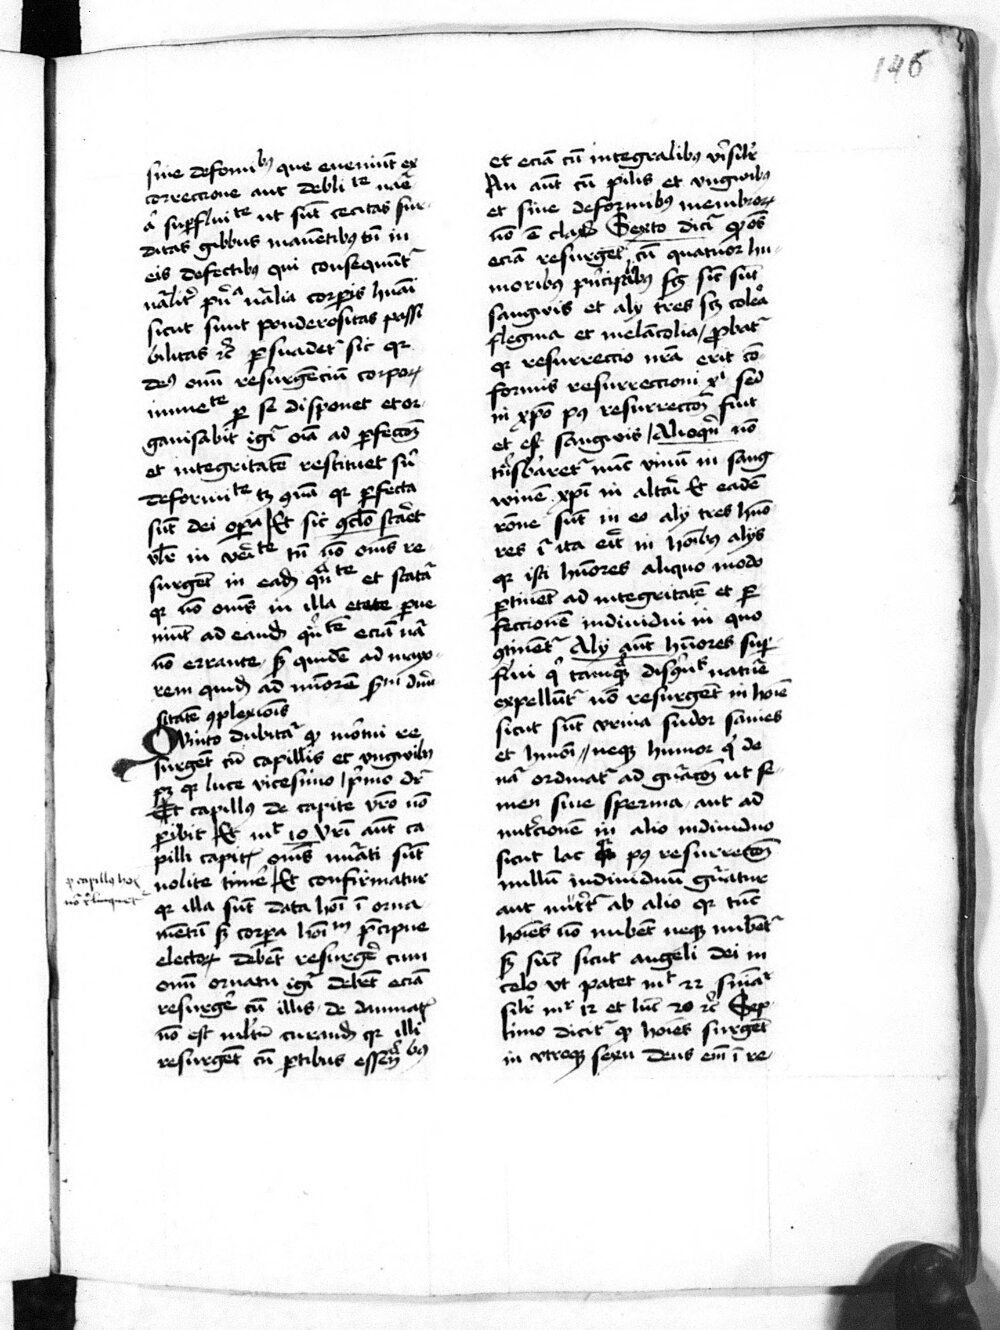 146
sine deformibus que eveniunt ex
correctione aut debilitate nature
a superfluitate ut sunt cecitas sur
ditas gibbus manentibus tamen in
eis defectibus qui consequuntur
naturaliter principia naturalia corporis humani
sicut sunt ponderositas passi
bilitas etc persuadetur sic quia
deus omnium resurgencium corpora
immediate per se disponet et or
ganisabit igitur omnia ad perfeccionem
et integritatem restituet sine
deformitate quia
sunt dei opera Et sic conclusio staret
in veritate tamen non omnes re
surgent in eadem quantitate et statura
quia non omnes in illa etate perue
niunt ad eandem quantitatem eciam natura
non errante sed quidem ad mayo
rem quidam ad minorem secundum diver
sitatem complexionis
Quinto dubitatur quod mortui re
surgent cum capillis et unguibus
patet quia luce vicesimo primo dicitur
Et capillus de capite vestro non
peribit Et mt 10 vestri autem ca
pilli capitis omnes numerati sunt
nolite timere Et confirmatur
quia illa sunt data homini in orna
mentum sed corpora hominum precipue
electorum debent resurgere cum
omni ornatu igitur debent eciam
resurgere cum illis de dampnatis
non est multum curandum quia illi
resurgent cum partibus essencialibus
quod capillus hominis
non relinquetur
et eciam cum integralibus verisimiliter
An autem cum pilis et unguibus
et sine deformibus membrorum
non est clarum Sexto dicitur quod omnes
eciam resurgent cum quatuor hu
moribus principalibus scilicet sicut sunt
sangwis et aly tres scilicet colera
flegma et melancolia probatur
quia resurreccio nostra erit con
formis resurreccioni xi sed
in xpo post resurreccionem fuit
et est sangwis Alioquin non
transsubstanciaretur nunc vinum in sang
winem xpi in altari Et eadem
racione sunt in eo aly tres humo
res et ita erit in hominibus alys
quia isti humores aliquo modo
pertinent ad integritatem et per
feccionem individui in quo
continentur Aly autem humores super
flui qui tamquam nature
expelluntur non resurgent in homine
sicut sunt urina sudor sanies
et huiusmodi neque humor qui de
natura ordinatur ad generacionem ut se
men sive sperma aut ad
nutricionem in alio individuo
sicut lac post resurreccionem
nullum individuum generatur
aut nutritur ab alio quia tunc
homines non nubent neque nubentur
sed sunt sicut angeli dei in
celo ut patet mt 22 similiter
mr 12 et luc 20 etc Sep
timo dicitur quod homines surgent
in utroque sexu deus enim in re